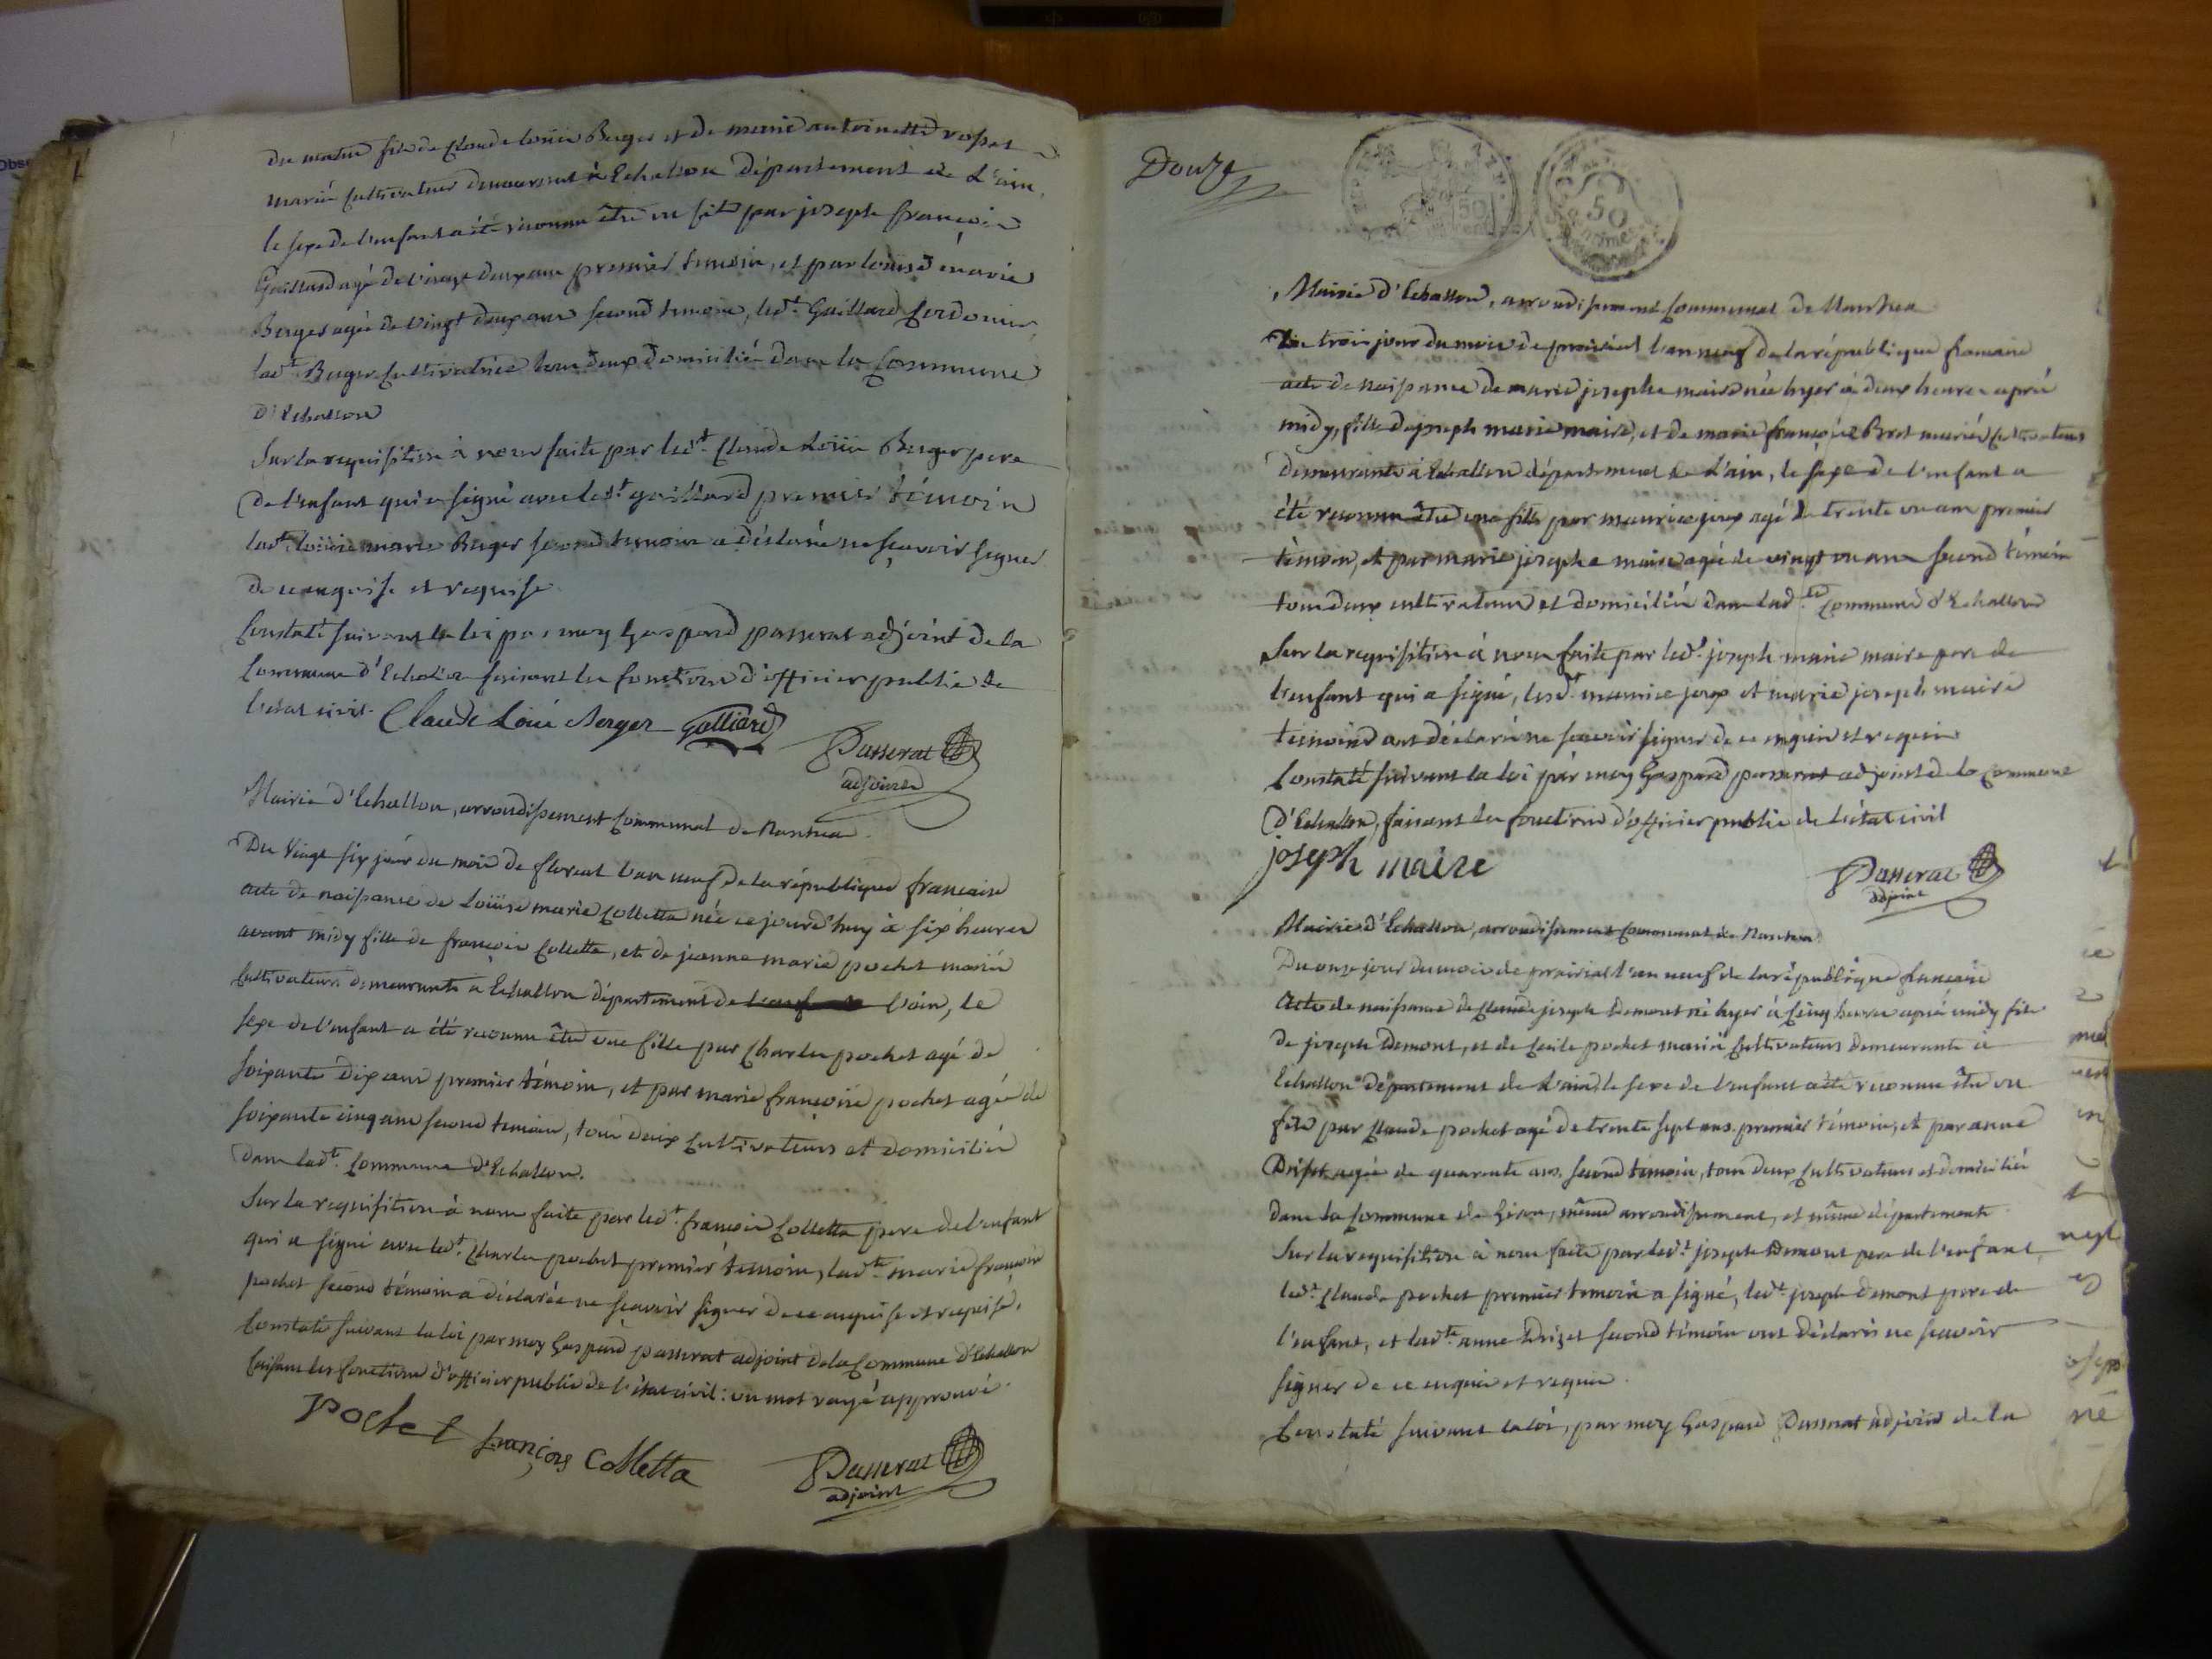 du matin fils de Claude Loüis Berger et de marie antoinette rosset
mariés Cultivateurs demeurant à Echallon département de L'ain,
le sexe de l'enfant a été reconnu être un fils par joseph françois
Gaillard agé de vingt deux ans premier temoin, et par louise marie
Berger agée de vingt deux ans second temoin, led.t Gaillard Cordonier
lad.t Berger Cultivatrice tous deux domiciliés dans la Commune
d'Echallon
Sur la requisition à nous faite par led.t Claude Loüis Berger pere
de l'enfant qui a signé avec led.t gaillard premier témoin
lad.te loüise marie Berger second temoin a déclaré ne sçavoir signer
de ce enquise et requise
Constaté suivant la loi par moy Gaspard passerat adjoint de la
Commune d'Echallon faisant les fonctions d'officier public de
l'état civil. Claude Loüi Berger Galliard
Passerat
adjoint
Mairie d'Echallon, arrondissement Communal de Nantua
Du Vingt six jour du mois de floreal l'an neuf de la république française
acte de naissance de Loüise marie Colletta née ce jourd'huy à six heures
avant midy fille de françois Colletta, et de jeanne marie pochet mariés
Cultivateurs demeurants a Echallon département de l'ain, le
sexe de l'enfant a été reconnu être une fille par Charles pochet agé de
soixante dix ans premier témoin, et par marie françoise pochet agée de
soixante cinq ans second temoin, tous deux Cultivateurs et domiciliés
dans lad.t Commune d'Echallon.
Sur la requisition à nous faite par led.t françois Colletta pere de l'enfant
qui a signé avec led.t Charles pochet premier temoin, lad.te marie françoise
pochet second témoin a déclarée ne sçavoir signer de ce enquise et requise,
Constaté suivant la loi par moy Gaspard passerat adjoint de la Commune d'Echallon
faisant les fonctions d'officier public de l'état civil: un mot rayé approuvé.
Pochet françois Colletta
Passerat
adjoint
Douze
50
50
Mairie d'Echallon, arrondissement Communal de Nantua
Du trois jour du mois de prairial l'an neuf de la république française
acte de naissance de marie josephe maire née hyer à deux heures après
midy, fille de joseph marie maire, et de marie françoise Brot mariés Cultivateurs
demeurants à Echallon département de L'ain, le sexe de l'enfant a
été reconnu être une fille par maurice joux agé de trente un ans premier
témoin, et par marie josephe maire agée de vingt un ans second témoin
tous deux cultivateurs et domiciliés dans lad.te Commune d'Echallon
Sur la requisition à nous faite par led.t joseph marie maire pere de
l'enfant qui a signé, lesd.t maurice joux et marie joseph maire
temoins ont déclarés ne sçavoir signer de ce enquis et requis
Constaté suivant la loi par moy Gaspard passerat adjoint de la Commune
d'Echallon, faisant les fonctions d'officier public de l'état civil
joseph maire
Passerat
adjoint
Mairie d'Echallon, arrondissement Communal de Nantua
Du onze jour du mois de prairial l'an neuf de la république française
Acte de naissance de Claude joseph Demont né hyer à Cinq heures après midy fils
de joseph Demont, et de Cecile pochet mariés Cultivateurs demeurants à
Echallon département de L'ain, le sexe de l'enfant a été reconnu être un
fils par Claude pochet agé de trente sept ans premier témoin, et par anne
agée de quarente ans second temoin, tous deux Cultivateurs et domiciliés
dans la Commune de Giron, même arrondissement, et même département
Sur la requisition à nous faite par led.t joseph Demont pere de l'enfant
led.t Claude pochet premier temoin a signé, led.t joseph demont pere de
l'enfant, et lad.te anne second témoin ont déclarés ne sçavoir
signer de ce enquis et requis.
Constaté suivant la loi, par moy Gaspard Passerat adjoint de la